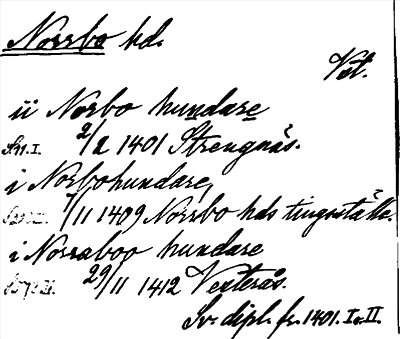 Norrbo hd.
Vst.
ii Norbo hundare
S. 71. I. 2/2 1401 Strengnäs.
i Norbohundare,
7/11 1409 Norrbo hds tingsställe.
i Norraboo hundare
29/11 1412 Vesterås.
Sv. dipl. fr. 1401. I o. II.